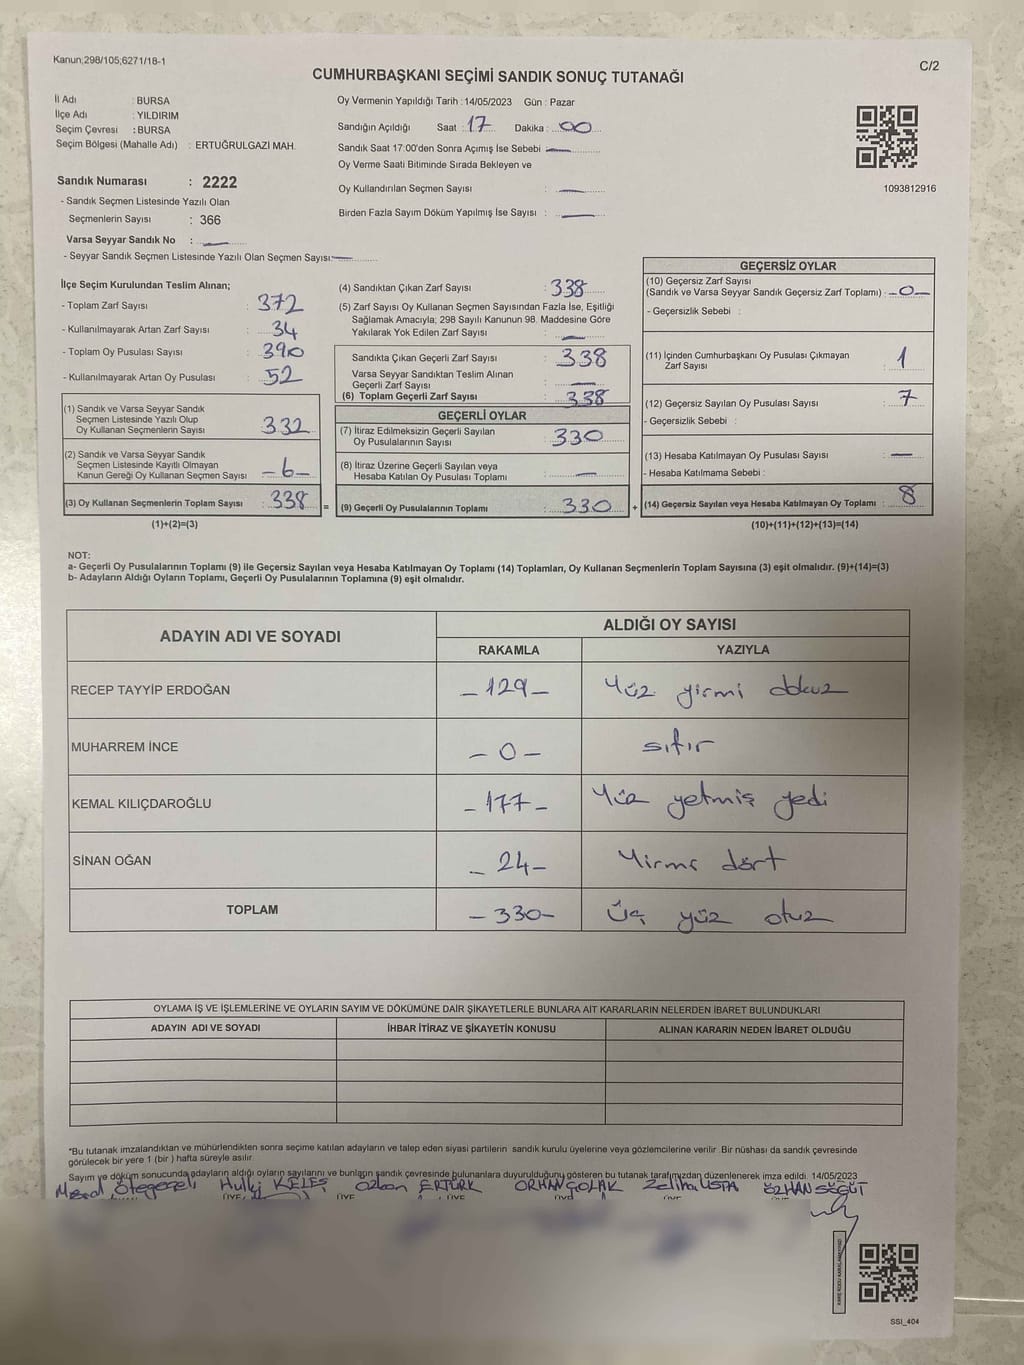 Kanun;298/105;6271/18-1
C/2
CUMHURBAŞKANI SEÇİMİ SANDIK SONUÇ TUTANAĞI
İl Adı : BURSA
İlçe Adı : YILDIRIM
Seçim Çevresi : BURSA
Seçim Bölgesi (Mahalle Adı) : ERTUĞRULGAZİ MAH.
Sandık Numarası : 2222
- Sandık Seçmen Listesinde Yazılı Olan
Seçmenlerin Sayısı : 366
Varsa Seyyar Sandık No :
- Seyyar Sandık Seçmen Listesinde Yazılı Olan Seçmen Sayısı:
Oy Vermenin Yapıldığı Tarih : 14/05/2023 Gün : Pazar
Sandığın Açıldığı Saat : 17 Dakika : 00
Sandık Saat 17:00'den Sonra Açımış İse Sebebi
Oy Verme Saati Bitiminde Sırada Bekleyen ve
Oy Kullandırılan Seçmen Sayısı :
Birden Fazla Sayım Döküm Yapılmış İse Sayısı :
1093812916
İlçe Seçim Kurulundan Teslim Alınan;
- Toplam Zarf Sayısı : 372
- Kullanılmayarak Artan Zarf Sayısı : 34
- Toplam Oy Pusulası Sayısı : 390
- Kullanılmayarak Artan Oy Pusulası : 52
(1) Sandık ve Varsa Seyyar Sandık
Seçmen Listesinde Yazılı Olup
Oy Kullanan Seçmenlerin Sayısı : 332
(2) Sandık ve Varsa Seyyar Sandık
Seçmen Listesinde Kayıtlı Olmayan
Kanun Gereği Oy Kullanan Seçmen Sayısı - 6 -
(3) Oy Kullanan Seçmenlerin Toplam Sayısı : 338
(1)+(2)=(3)
(4) Sandıktan Çıkan Zarf Sayısı : 338
(5) Zarf Sayısı Oy Kullanan Seçmen Sayısından Fazla İse, Eşitliği
Sağlamak Amacıyla; 298 Sayılı Kanunun 98. Maddesine Göre
Yakılarak Yok Edilen Zarf Sayısı :
Sandıkta Çıkan Geçerli Zarf Sayısı : 338
Varsa Seyyar Sandıktan Teslim Alınan
Geçerli Zarf Sayısı :
(6) Toplam Geçerli Zarf Sayısı : 338
GEÇERLİ OYLAR
(7) İtiraz Edilmeksizin Geçerli Sayılan
Oy Pusulalarının Sayısı : 330
(8) İtiraz Üzerine Geçerli Sayılan veya
Hesaba Katılan Oy Pusulası Toplamı :
= (9) Geçerli Oy Pusulalarının Toplamı : 330
GEÇERSİZ OYLAR
(10) Geçersiz Zarf Sayısı
(Sandık ve Varsa Seyyar Sandık Geçersiz Zarf Toplamı) : - 0 -
- Geçersizlik Sebebi :
(11) İçinden Cumhurbaşkanı Oy Pusulası Çıkmayan
Zarf Sayısı : 1
(12) Geçersiz Sayılan Oy Pusulası Sayısı : 7
- Geçersizlik Sebebi :
(13) Hesaba Katılmayan Oy Pusulası Sayısı : —
- Hesaba Katılmama Sebebi :
+ (14) Geçersiz Sayılan veya Hesaba Katılmayan Oy Toplamı : 8
(10)+(11)+(12)+(13)=(14)
NOT:
a- Geçerli Oy Pusulalarının Toplamı (9) ile Geçersiz Sayılan veya Hesaba Katılmayan Oy Toplamı (14) Toplamları, Oy Kullanan Seçmenlerin Toplam Sayısına (3) eşit olmalıdır. (9)+(14)=(3)
b- Adayların Aldığı Oyların Toplamı, Geçerli Oy Pusulalarının Toplamına (9) eşit olmalıdır.
ADAYIN ADI VE SOYADI
ALDIĞI OY SAYISI
RAKAMLA YAZIYLA
RECEP TAYYİP ERDOĞAN - 129 - Yüz yirmi dokuz
MUHARREM İNCE - 0 - sıfır
KEMAL KILIÇDAROĞLU - 177 - Yüz yetmiş yedi
SİNAN OĞAN - 24 - Yirmi dört
TOPLAM - 330 - Üç yüz otuz
OYLAMA İŞ VE İŞLEMLERİNE VE OYLARIN SAYIM VE DÖKÜMÜNE DAİR ŞİKAYETLERLE BUNLARA AİT KARARLARIN NELERDEN İBARET BULUNDUKLARI
ADAYIN ADI VE SOYADI İHBAR İTİRAZ VE ŞİKAYETİN KONUSU ALINAN KARARIN NEDEN İBARET OLDUĞU
*Bu tutanak imzalandıktan ve mühürlendikten sonra seçime katılan adayların ve talep eden siyasi partilerin sandık kurulu üyelerine veya gözlemcilerine verilir .Bir nüshası da sandık çevresinde
görülecek bir yere 1 (bir ) hafta süreyle asılır.
Sayım ve döküm sonucunda adayların aldığı oyların sayılarını ve bunların sandık çevresinde bulunanlara duyurulduğunu gösteren bu tutanak tarafımızdan düzenlenerek imza edildi. 14/05/2023
Hulki KELEŞ Özkan ERTÜRK ORHAN ÇOLAK Zeliha USTA ÖZHAN SÖĞÜT
ÜYE ÜYE ÜYE
SSI_404